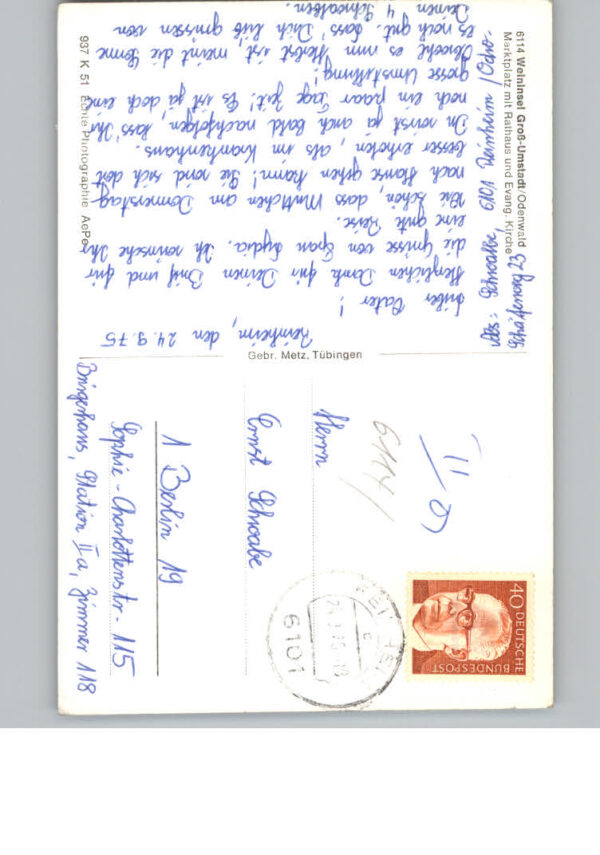 6114 Weininsel Groß-Umstadt/Odenwald
Marktplatz mit Rathaus und Evang. Kirche
Abs: Schwalbe, 6101 Reinheim/Odw.
23
Reinheim, den 24.9.75
Lieber Vater!
Herzlichen Dank für Deinen Brief und für
die Grüsse von Frau Lydia. Ich wünsche Ihr
eine gute Reise.
Wie schön, dass Muttchen am Donnerstag
nach Hause gehen kann! Sie wird sich dort
besser erholen, als im Krankenhaus.
Du wirst ja auch bald nachfolgen, lass' Ihr
noch ein paar Tage Zeit! Es ist ja doch eine
grosse Umstellung!
Obwohl es nun Herbst ist, meint die Sonne
es noch gut. Lass' Dich lieb grüssen von
Deinen 4 Schwalben.
937 K 51 Echte Photographie AePe
Gebr. Metz, Tübingen
6114
Herrn
Ernst Schwalbe
1 Berlin 19
Sophie-Charlottenstr. 115
Bürgerhaus, Station IIa, Zimmer 118
40
DEUTSCHE
BUNDESPOST
6101